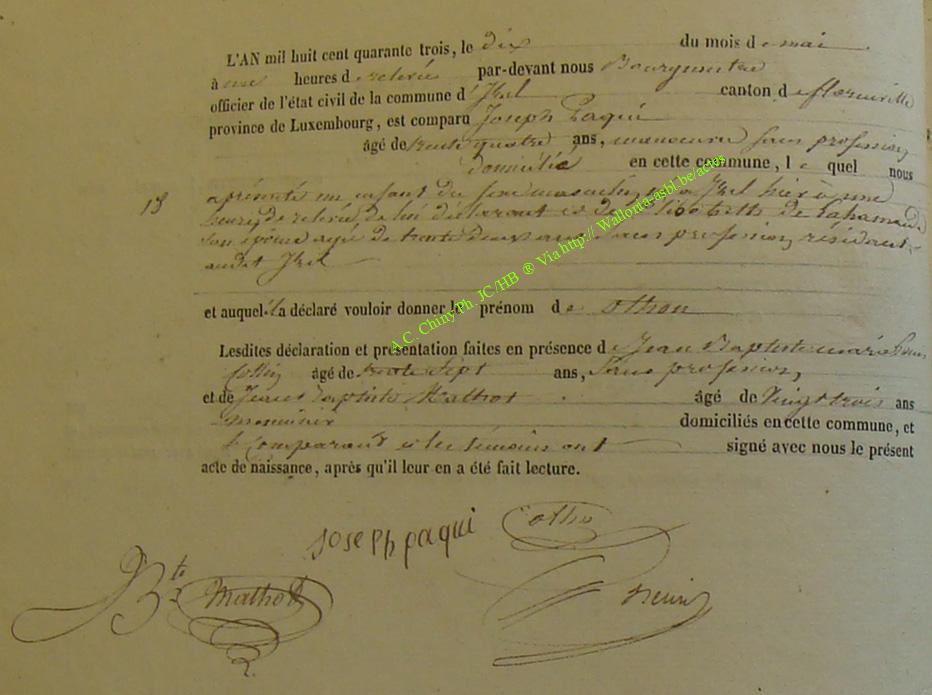 L'AN mil huit cent quarante trois, le dix du mois de mai
à une heures de relevée par-devant nous Bourgmestre
officier de l'état civil de la commune d'Izel canton de florenville
province de Luxembourg, est comparu Joseph Paqui
âgé de trente quatre ans, manoeuvre sans profession
domicilié en cette commune, le quel nous
18 a présenté un enfant du sexe masculin, né à Izel hier à une
heure de relevée de lui déclarant et de Elisabeth de
son épouse agée de trente deux ans sans profession, résidant
audit Izel
et auquel il a déclaré vouloir donner le prénom de othon
Lesdites déclaration et présentation faites en présence de Jean Baptiste
âgé de trente sept ans, sans profession,
et de Jean Baptiste Mathot âgé de vingt trois ans
menuisier domiciliés en cette commune, et
le Comparant et les témoins ont signé avec nous le présent
acte de naissance, après qu'il leur en a été fait lecture.
joseph paqui
Bte Mathot
A.C. Chiny Ph JC/HB ® Via http:// Wallonia-asbl.be/actes